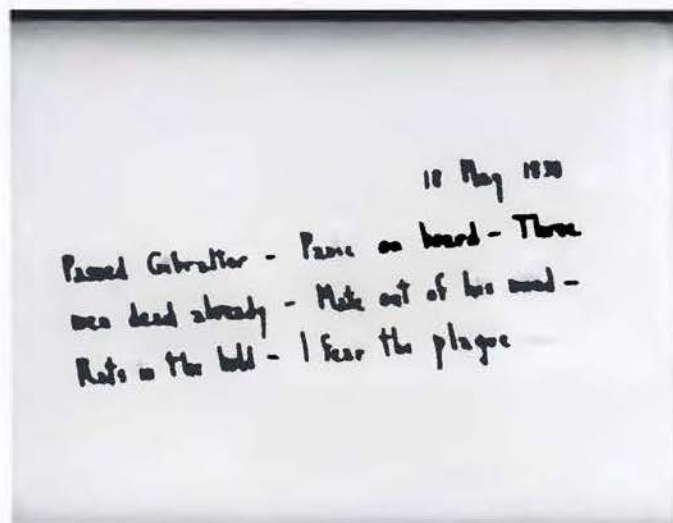 18 May 1838
Passed Gibraltar - Panic on board - Three
men dead already - Mate out of his mind -
Rats in the hold - I fear the plague